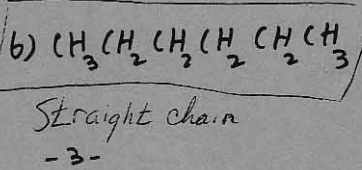 6) CH₃CH₂CH₂CH₂CH₂CH₃
Straight chain
-3-